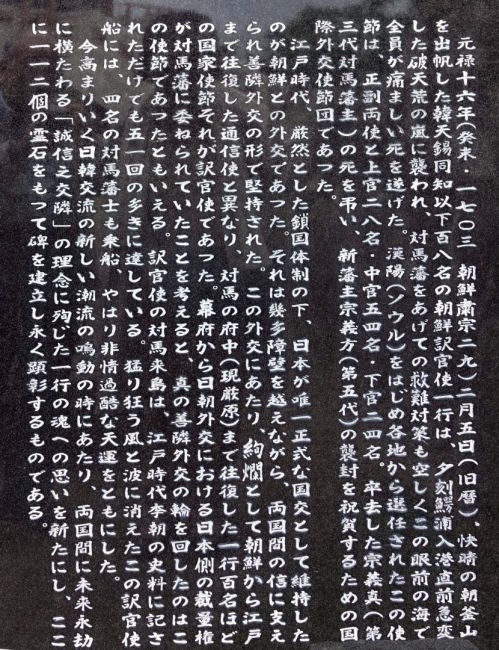 元禄十六年(癸未・一七〇三 朝鮮粛宗二九)二月五日(旧暦)、快晴の朝釜山
を出帆した韓天錫同知以下百八名の朝鮮訳官使一行は、夕刻鰐浦入港直前急変
した破天荒の嵐に襲われ、対馬藩をあげての救難対策も空しくこの眼前の海で
全員が痛ましい死を遂げた。漢陽(ソウル)をはじめ各地から選任されたこの使
節は、正副両使と上官二八名・中官五四名、下官二四名。卒去した宗義真(第
三代対馬藩主)の死を弔い、新藩主宗義方(第五代)の襲封を祝賀するための国
際外交使節団であった。
江戸時代、厳然とした鎖国体制の下、日本が唯一正式な国交として維持した
のが朝鮮との外交であった。それは幾多障壁を越えながら、両国間の信に支え
られ善隣外交の形で堅持された。この外交にあたり、絢爛として朝鮮から江戸
まで往復した通信使と異なり、対馬の府中(現厳原)まで往復した一行百名ほど
の国家使節それが訳官使であった。幕府から日朝外交における日本側の裁量権
が対馬藩に委ねられていたことを考えると、真の善隣外交の輪を回したのはこ
の使節であったともいえる。訳官使の対馬来島は、江戸時代李朝の史料に記さ
れただけでも五一回の多きに達している。猛り狂う風と波に消えたこの訳官使
船には、四名の対馬藩士も乗船、やはり非情過酷な天運をともにした。
今高まりいく日韓交流の新しい潮流の鳴動の時にあたり、両国間に未来永劫
に横たわる「誠信之交隣」の理念に殉じた一行の魂への思いを新たにし、ここ
に一一二個の霊石をもつて碑を建立し永く顕彰するものである。